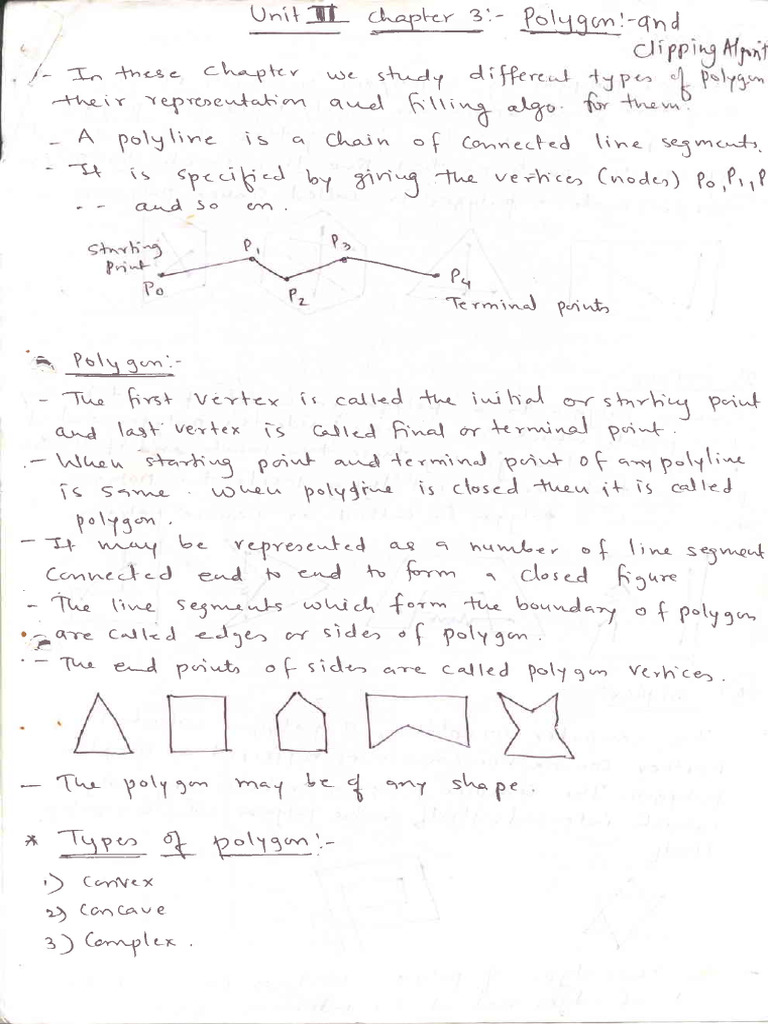 Unit II chapter 3:- Polygon:- and
Clipping Algorit
- In these chapter we study different types of polygon
their representation and filling algo. for them.
- A polyline is a chain of connected line segments.
- It is specified by giving the vertices (nodes) P0, P1, P
-- and so on.
Starting
point
P0
P1
P2
P3
P4
Terminal points
* Polygon:-
- The first vertex is called the initial or starting point
and last vertex is called final or terminal point.
- When starting point and terminal point of any polyline
is same. when polyline is closed then it is called
polygon.
- It may be represented as a number of line segment
connected end to end to form a closed figure
- The line segments which form the boundary of polygon
are called edges or sides of polygon.
- The end points of sides are called polygon vertices.
- The polygon may be of any shape.
* Types of polygon:-
1) Convex
2) Concave
3) Complex.